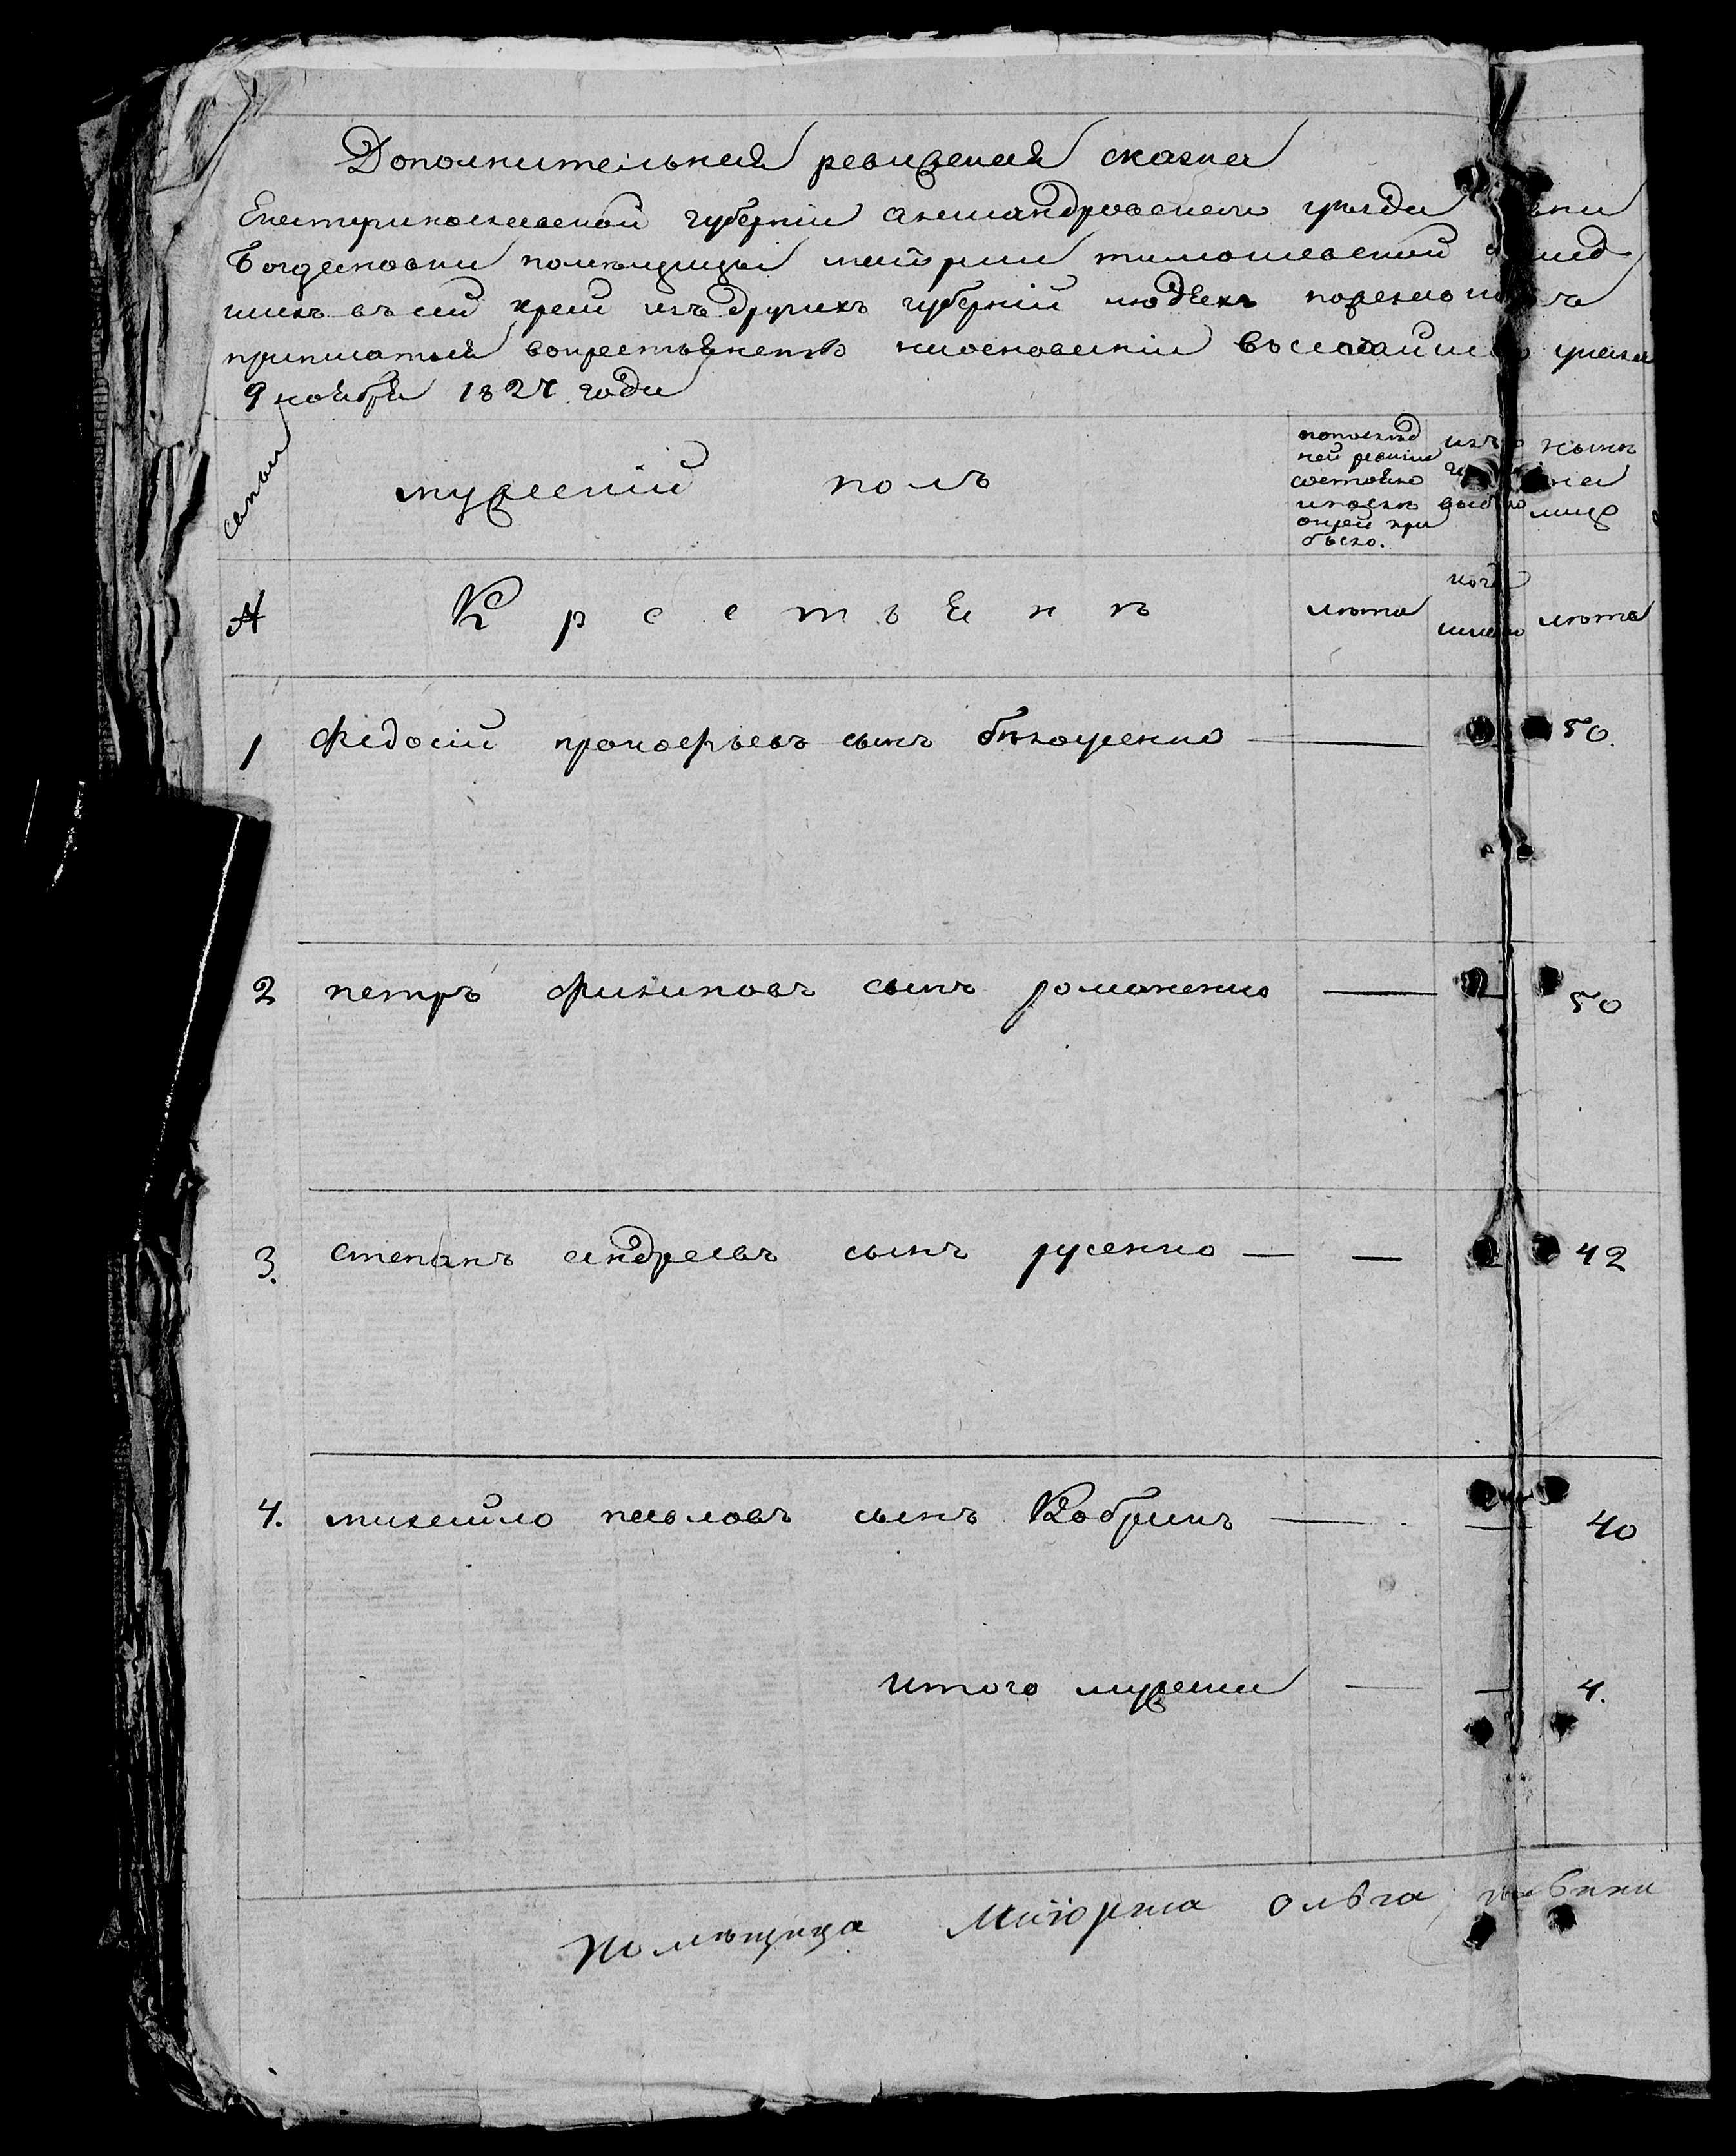 Дополнительная ревизская сказка
Екатеринославской губернии александровского уъзда
Богдановки помъщицы маиорши тимошевской
шихъ въ сей край изъ другихъ губерний людехъ
приписатся вокрестьянство наосновании высочайшаго указа
9 ноября 1827 года
семьи
мужеский полъ
попослѣд
ней ревизии
состояло
ипослѣ
оней при
было.
изъ
нынѣ
на
лицо
Крестьянѣ
лѣта
лѣта
1 федосий прокофьевъ сынъ бѣлоусенко 50.
2 петръ филиповъ сынъ романенко 50
3. степанъ андреевъ сынъ русенко 42
4. михайло павловъ сынъ Кобринъ 40
итого мужеска 4.
Помѣщица Маіорша Ольга